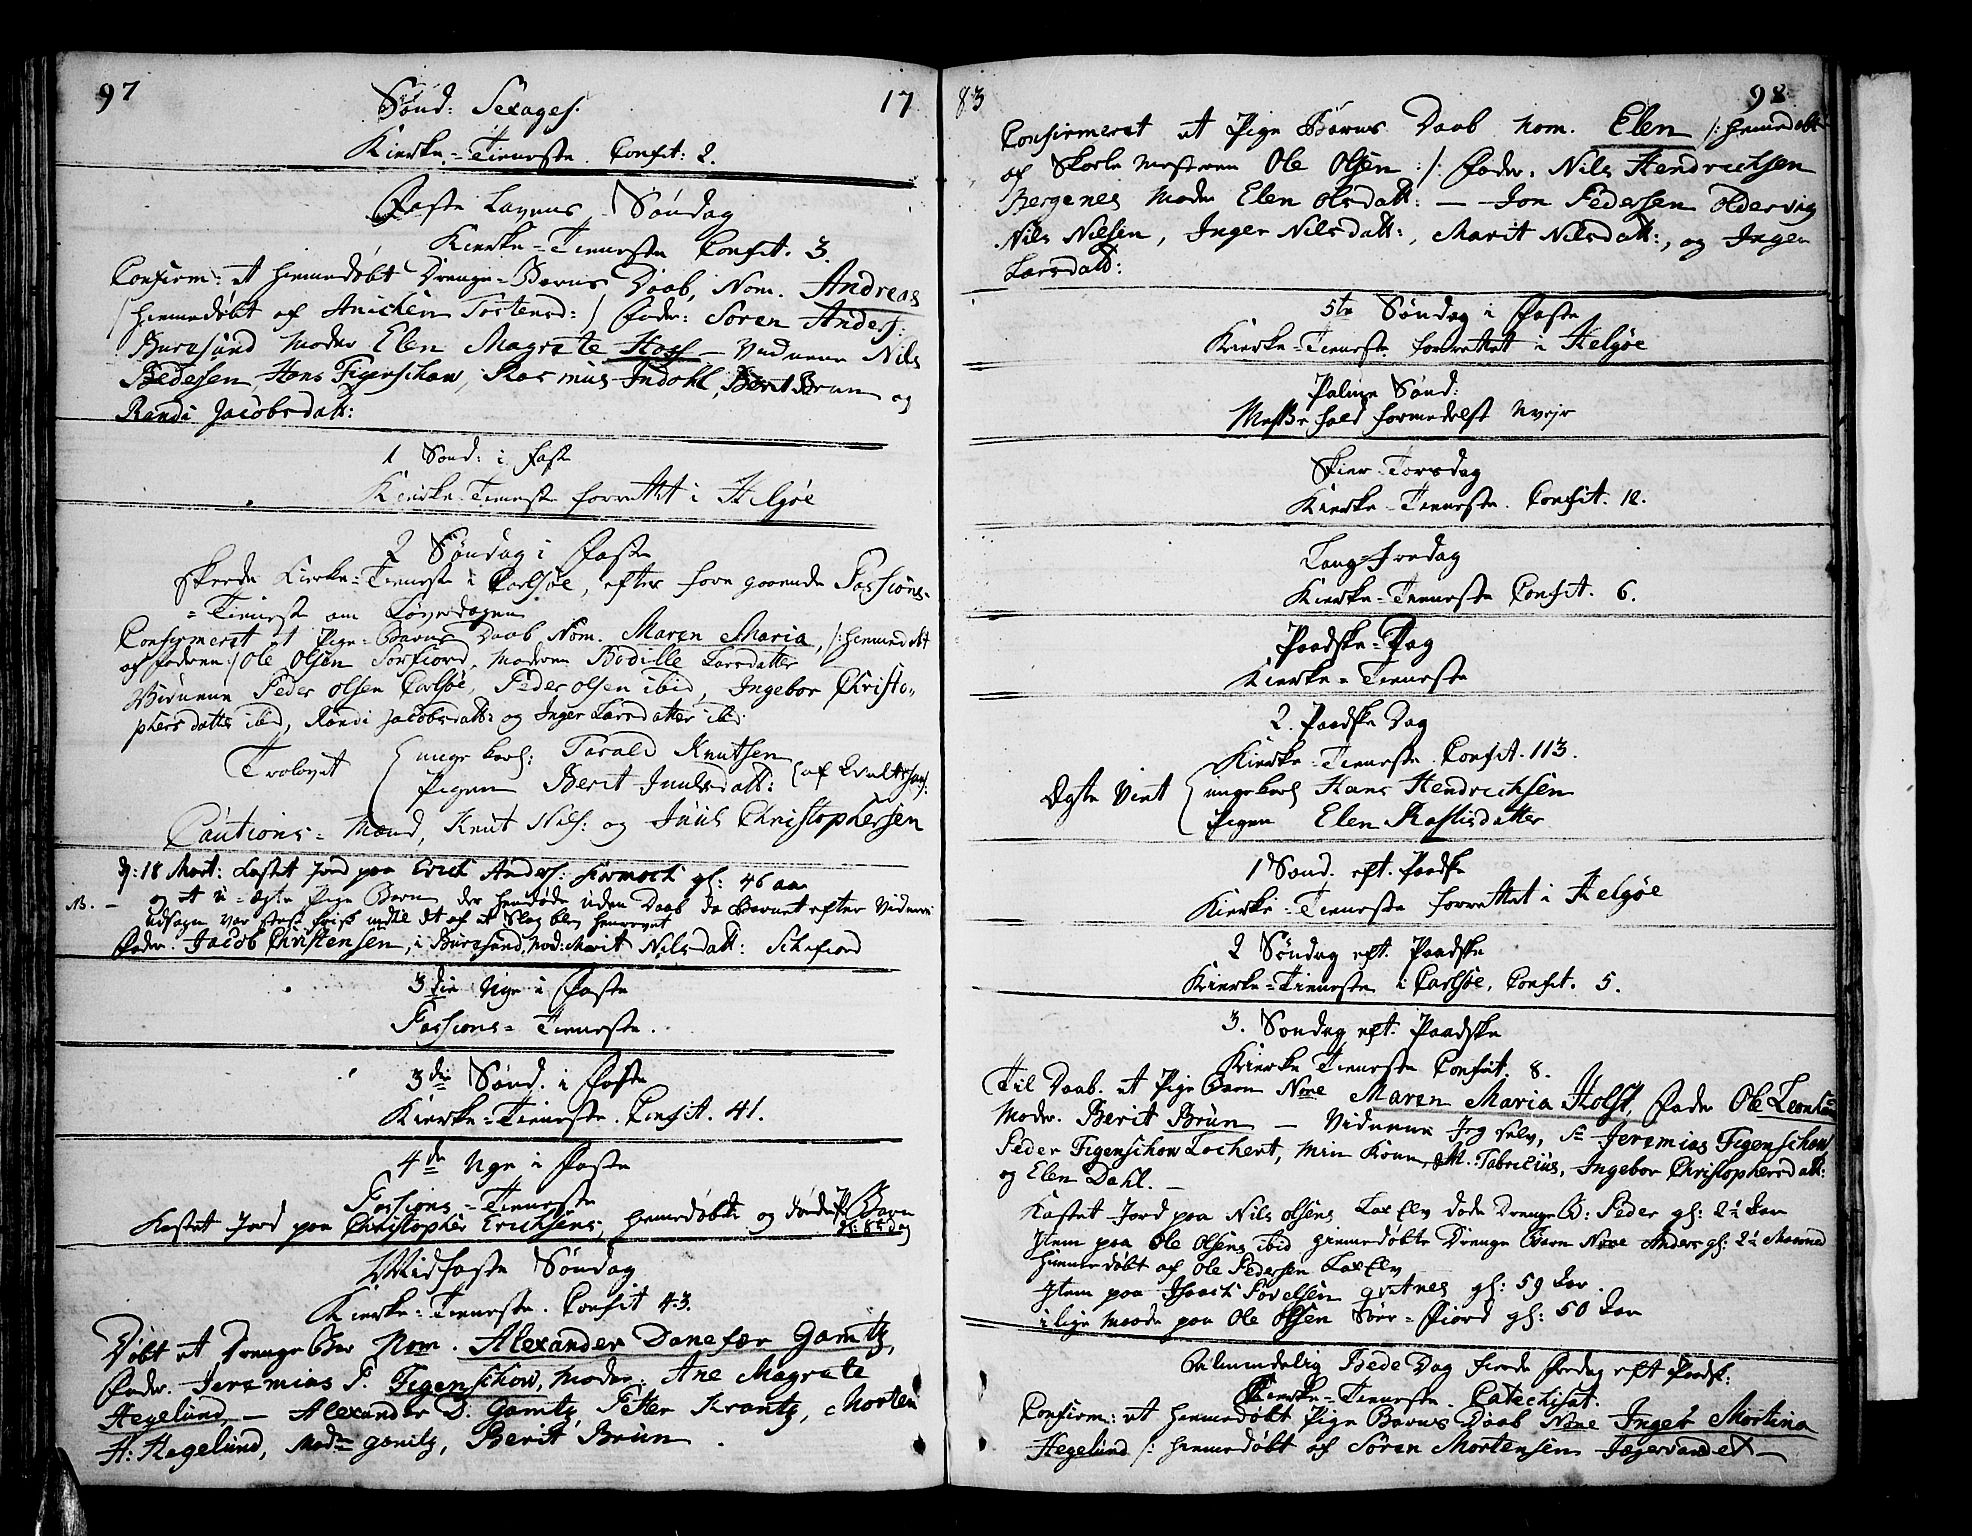 97
17
Sönd: Sexages.
Kierke-Tieneste. Confit: 2.
Faste Lavens Søndag
Kierke-Tieneste Confit. 3.
Confirm: et hiemedøbt Drenge-Barns Daab, Nom. Andreas
/hiemedøbt af Anichen Tostensd:/ Fader: Sören Anders:
Buresund Moder Elen Magrete Hoss - Vidnerne Nils
Pedersen, Hans Figenschow, Rasmus Indahl, Berit Brun og
Randi Jacobsdatt:
1 Sönd: i Faste
Kierke-Tieneste forrettet i Helgöe
2 Søndag i Faste
skeede Kierke-Tieneste i Carlsöe, efter foregaaende Passions-
-Tieneste om Løverdagen
Confirmeret et Pige-Barns Daab Nom. Maren Maria, /:hiemedøbt
af Faderen:/ Ole Olsen Sorfiord, Moderen Bodille Larsdatter
Vidnerne Peder Olsen Carlsöe, Peder Olsen ibid, Ingebor Christo-
phersdatter ibid, Randi Jacobsdatt: og Inger Larsdatter ibid
Trolovet { unge karl: Tarald Knutsen
Pigen Berit Juulsdatt: } af
Cautions-Mænd, Knut Nils: og Juul Christophersen
D: 18 Mart: Kastet Jord paa Erich Anders: gl: 46 aar
NB. - og et u-ægte Pige Barn, der hendøde uden Daab da Barnet efter Vidners
udsagn var frisk indtil det af et Slag blev henrevet
Fader: Jacob Christensen, i Buresund, Mod: Marit Nilsdatt:
3die Uge i Faste
Passions-Tieneste.
3die Sönd. i Faste
Kierke-Tieneste. Confit. 41.
4de Uge i Faste
Passions-Tieneste
Kastet Jord paa Christopher Erichsens, hiemedøbte og døde P: Barn
gl: 8 dag
Midfaste Søndag
Kierke-Tieneste. Confit 43.
Døbt et Drenge Bar Nom. Alexander Danefær Gamtz,
Fader. Jeremias P. Figenschow, Moder: Ane Magrete
Hegelund, - Alexander D. Gamtz, Peter Krantz, Morten
H: Hegelund, Madme Gamtz, Berit Brun.
83
98
Confirmeret et Pige Barns Daab Nom. Elen /:hiemedøbt
af Skolemesteren Ole Olsen:/: Fader: Nils Hendrichsen
Bergenes Moder Elen Olsdatt: - Jon Pedersen Oldervig
Nils Nilsen, Inger Nilsdatt:, Marit Nilsdatt:, og Inger
Larsdatt:
5te Søndag i Faste
Kierke-Tieneste forrettet i Helgöe
Palme Sönd:
Messefald formedelst Uvejr
Skier-Torsdag
Kierke-Tieneste. Confit. 12.
Lang-Fredag
Kierke-Tieneste Confit. 6.
Paaske-Dag
Kierke-Tieneste
2. Paaske Dag
Kierke-Tieneste. Confit. 113.
Ægte Viet { ungekarl Hans Hendrichsen
Pigen Elen Rastisdatter
1 Sönd. eft. Paaske
Kierke-Tieneste forrettet i Helgöe
2 Søndag eft. Paaske
Kierke-Tieneste i Carlsöe, Confit. 5.
3. Søndag eft. Paaske
Kierke Tieneste Confit. 8.
Til Daab et Pige Barn Nome Maren Maria Holst, Fader Ole
Moder. Berit Brun - Vidnerne Jeg selv, Sr Jeremias Figenschow
Peder Figenschow Lochert, Min Kone, M. Fabricius, Ingebor Christophersdatt:
og Elen Dahl. -
Kastet Jord paa Nils Olsens døde Drenge B: Peder gl: 2½ Aar
Item paa Ole Olsens ibid hiemedøbte Drenge Barn Nome Anders gl: 2½ Maaned
hiemedøbt af Ole Pedersen
Item paa Povelsen Grøtnes gl: 59 Aar.
i lige Maade paa Ole Olsen Sörr-Fiord gl: 50 Aar
Almindelig Bede Dag fierde Fredag eft Paaske:
Kierke-Tieneste. Catechisat.
Confirm: et hiemedøbt Pige Barns Daab Nome Ingeb Mortina
Hegelund /: hiemedøbt af Sören Mortensen Jægervandet -